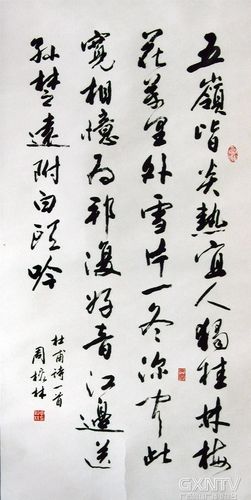 五嶺皆炎熱宜人獨桂林梅
花萬里外雪片一冬深聞此
寬相憶為邦復好音江邊送
孫楚遠附白頭吟
杜甫诗一首
GXNTV